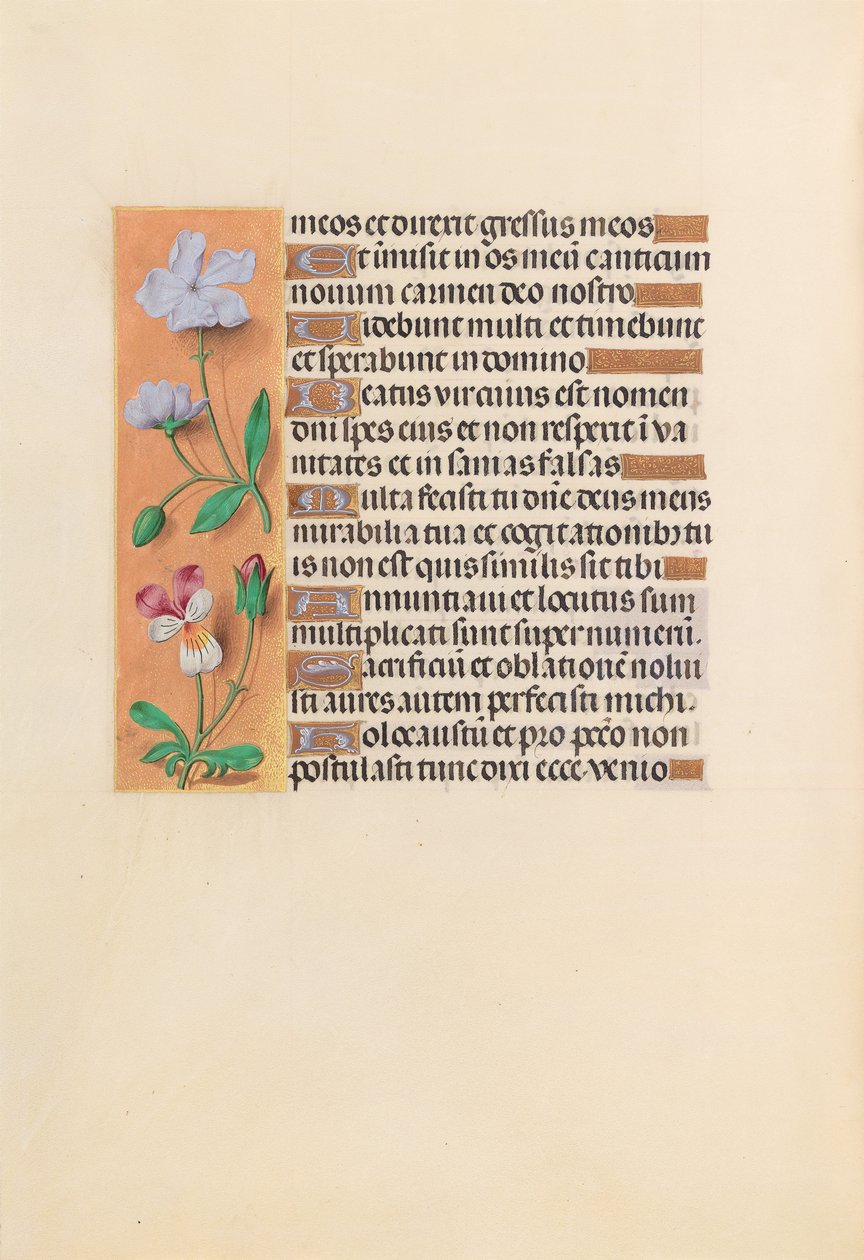 meos et direxit gressus meos
Et īmisit in os meū canticum
novum carmen deo nostro
Videbunt multi et timebunt
et sperabunt in domino
Beatus vir cuius est nomen
dni spes eius et non respexit ī va
nitates et in sanias falsas
Multa fecisti tu dñe deus meus
mirabilia tua et cogitationibꝫ tu
is non est quis similis sit tibi
Annuntiavi et locutus sum
multiplicati sunt super numerū.
Sacrificiū et oblationē nolui
sti aures autem perfecisti michi.
Holocaustū et pro pcco non
postulasti tunc dixi ecce venio